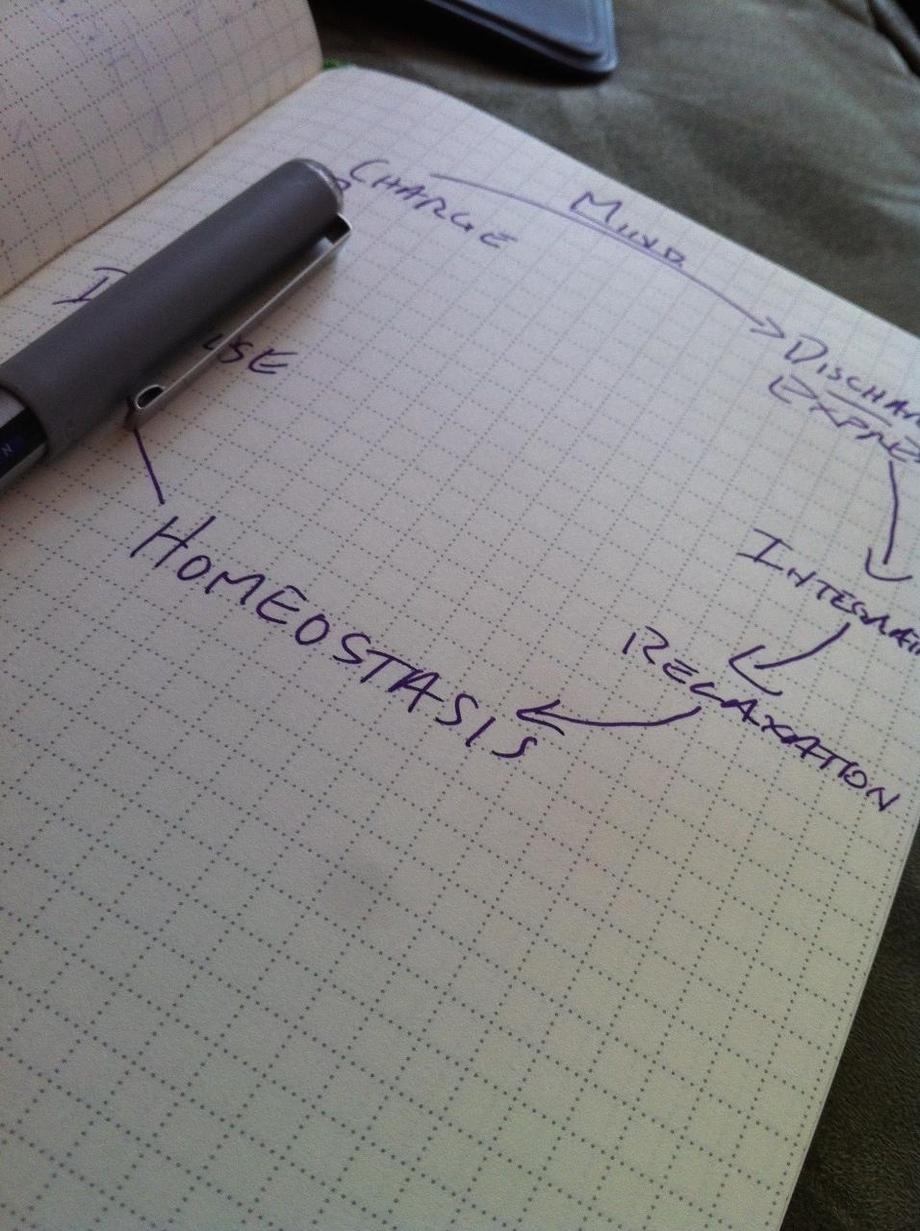 CHARGE
MIND
DISCHAR
EXPRE
I
LSE
INTEGRATI
RELAXATION
HOMEOSTASIS
N